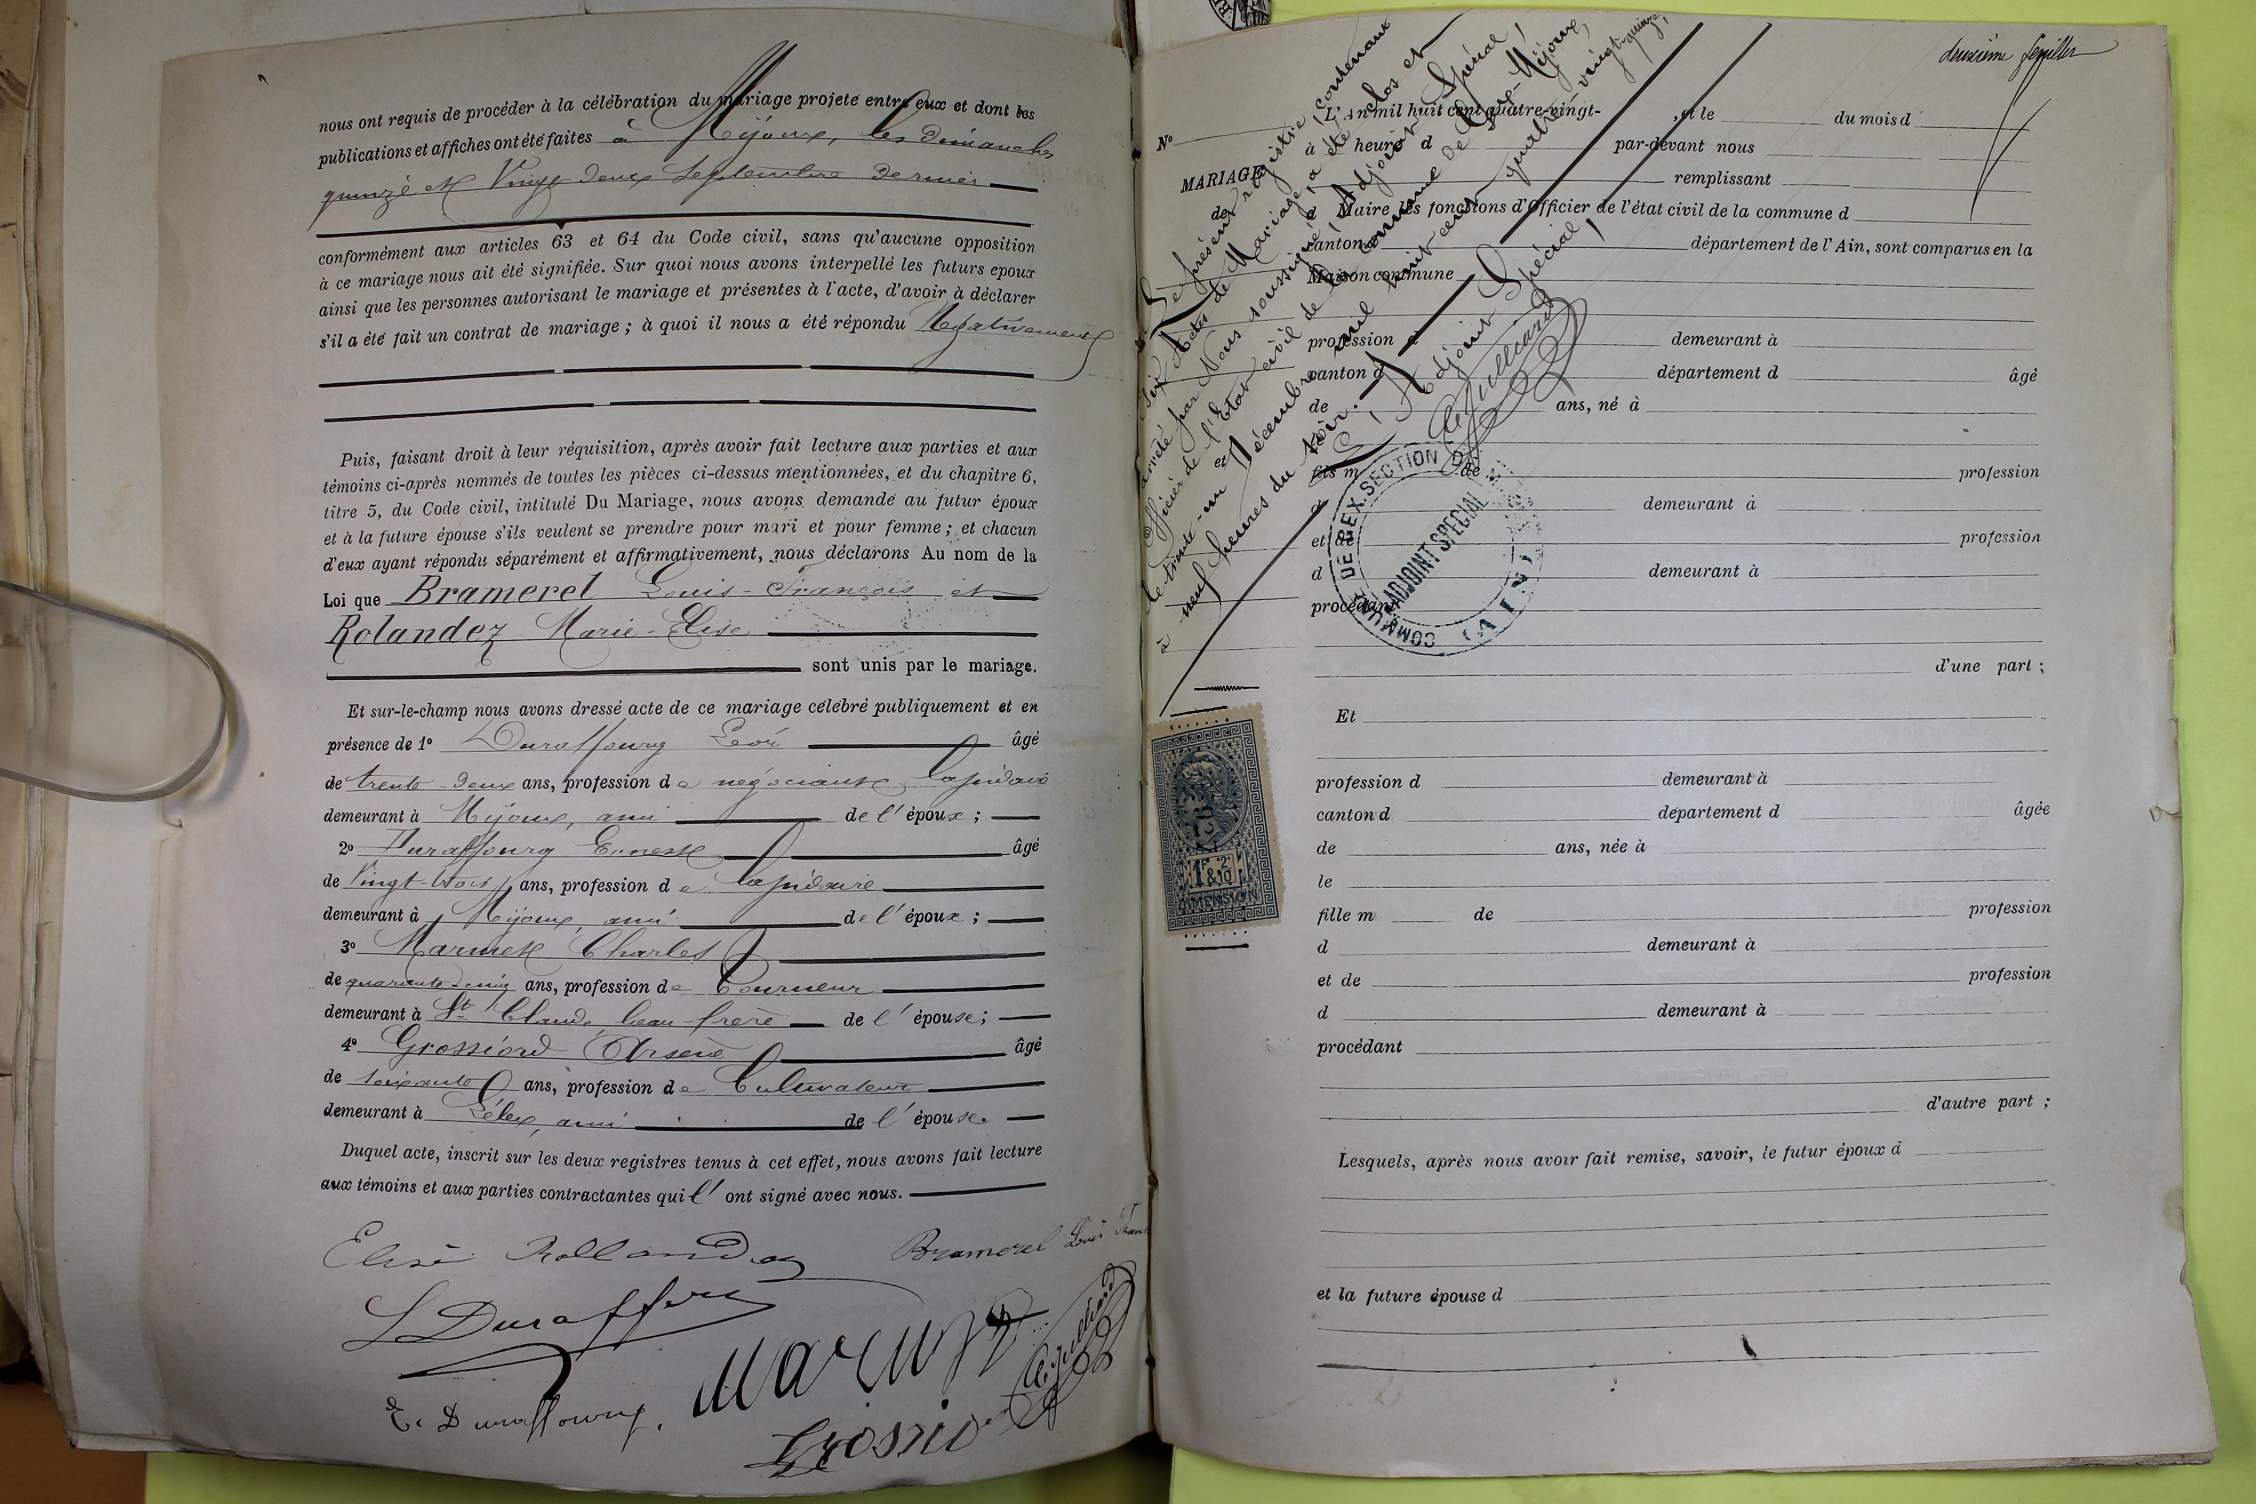 nous ont requis de procéder à la célébration du mariage projeté entre eux et dont les
publications et affiches ont été faites à Mijoux, les dimanches
quinze et Vingt-deux Septembre dernier
conformément aux articles 63 et 64 du Code civil, sans qu'aucune opposition
à ce mariage nous ait été signifiée. Sur quoi nous avons interpellé les futurs époux
ainsi que les personnes autorisant le mariage et présentes à l'acte, d'avoir à déclarer
s'il a été fait un contrat de mariage ; à quoi il nous a été répondu Négativement
Puis, faisant droit à leur réquisition, après avoir fait lecture aux parties et aux
témoins ci-après nommés de toutes les pièces ci-dessus mentionnées, et du chapitre 6,
titre 5, du Code civil, intitulé Du Mariage, nous avons demandé au futur époux
et à la future épouse s'ils veulent se prendre pour mari et pour femme ; et chacun
d'eux ayant répondu séparément et affirmativement, nous déclarons Au nom de la
Loi que Bramerel Louis-François et
Rolandez Marie-Elise
sont unis par le mariage.
Et sur-le-champ nous avons dressé acte de ce mariage célébré publiquement et en
présence de 1° Duraffourg Léon âgé
de trente-deux ans, profession de négociant lapidaire
demeurant à Mijoux, ami de l'époux ;
2° Duraffourg Ernest âgé
de Vingt-trois ans, profession de lapidaire
demeurant à Mijoux, ami de l'époux ;
3° Marmet Charles
de quarante-cinq ans, profession de Tourneur
demeurant à St Claude, beau-frère de l'épouse ;
4° Grossiord Arsène âgé
de soixante ans, profession de Cultivateur
demeurant à Lélex, ami de l'épouse.
Duquel acte, inscrit sur les deux registres tenus à cet effet, nous avons fait lecture
aux témoins et aux parties contractantes qui l'ont signé avec nous.
Elise Rollandez Bramerel Louis Fran
L Duraffourg
E. Duraffourg. Marmet
Grossio
deuxième feuillet
Le présent registre contenant
six Actes de Mariage, a été clos et
arrêté par Nous soussigné, Adjoint Spécial,
Officier de l'Etat civil de la commune de Gex-Mijoux,
le trente-un Décembre mil huit cent quatre-vingt-quinze,
à neuf heures du soir.
L'Adjoint Spécial,
COMMUNE DE GEX. SECTION DE MIJOUX
L'ADJOINT SPECIAL
(AIN)
N° L'An mil huit cent quatre-vingt- , et le du mois d
à heure d par-devant nous
MARIAGE remplissant
de d Maire les fonctions d'Officier de l'état civil de la commune d
canton département de l'Ain, sont comparus en la
Maison commune
profession d demeurant à
canton d département d âgé
de ans, né à
et fils m de profession
d demeurant à
et de profession
d demeurant à
procédant
d'une part ;
Et
profession d demeurant à
canton d département d âgée
de ans, née à
le
fille m de profession
d demeurant à
et de profession
d demeurant à
procédant
d'autre part ;
Lesquels, après nous avoir fait remise, savoir, le futur époux d
et la future épouse d
1F 2/10
&
DIMENSION